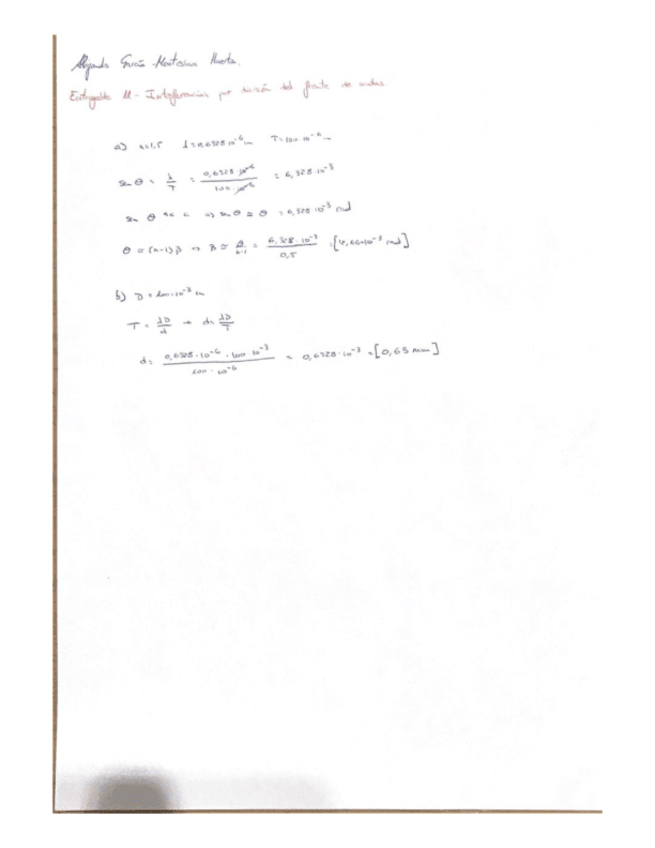 Alejandro García-Montesinos Huerta.
Entregable 11 - Interferencias por división del frente de ondas.
a) n=1,5 λ=0,6328·10⁻⁶ m T=100·10⁻⁶ m
sen θ = λ/T = 0,6328·10⁻⁶/100·10⁻⁶ = 6,328·10⁻³
sen θ << → sen θ ≅ θ = 6,328·10⁻³ rad
θ ≅ (n-1)β → β ≅ θ/n-1 = 6,328·10⁻³/0,5 = [ ·10⁻³ rad]
b) D = 100·10⁻³ m
T = λD/d → d = λD/T
d = 0,6328·10⁻⁶ · 100·10⁻³/100·10⁻⁶ = 0,6328·10⁻³ = [0,63 mm]